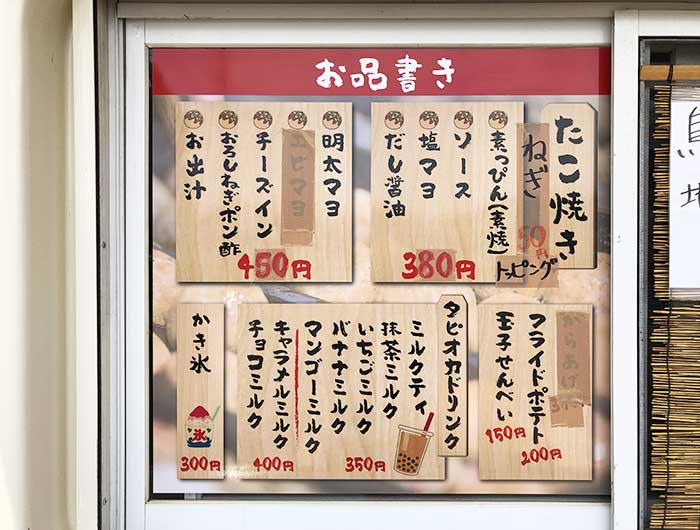 お品書き
たこ焼き
ねぎ
50円
トッピング
素っぴん(素焼)
ソース
塩マヨ
だし醤油
380円
明太マヨ
エビマヨ
チーズイン
おろしねぎポン酢
お出汁
450円
からあげ
フライドポテト
200円
玉子せんべい
150円
タピオカドリンク
ミルクティ
抹茶ミルク
いちごミルク
バナナミルク
マンゴーミルク
350円
キャラメルミルク
チョコミルク
400円
かき氷
氷
300円